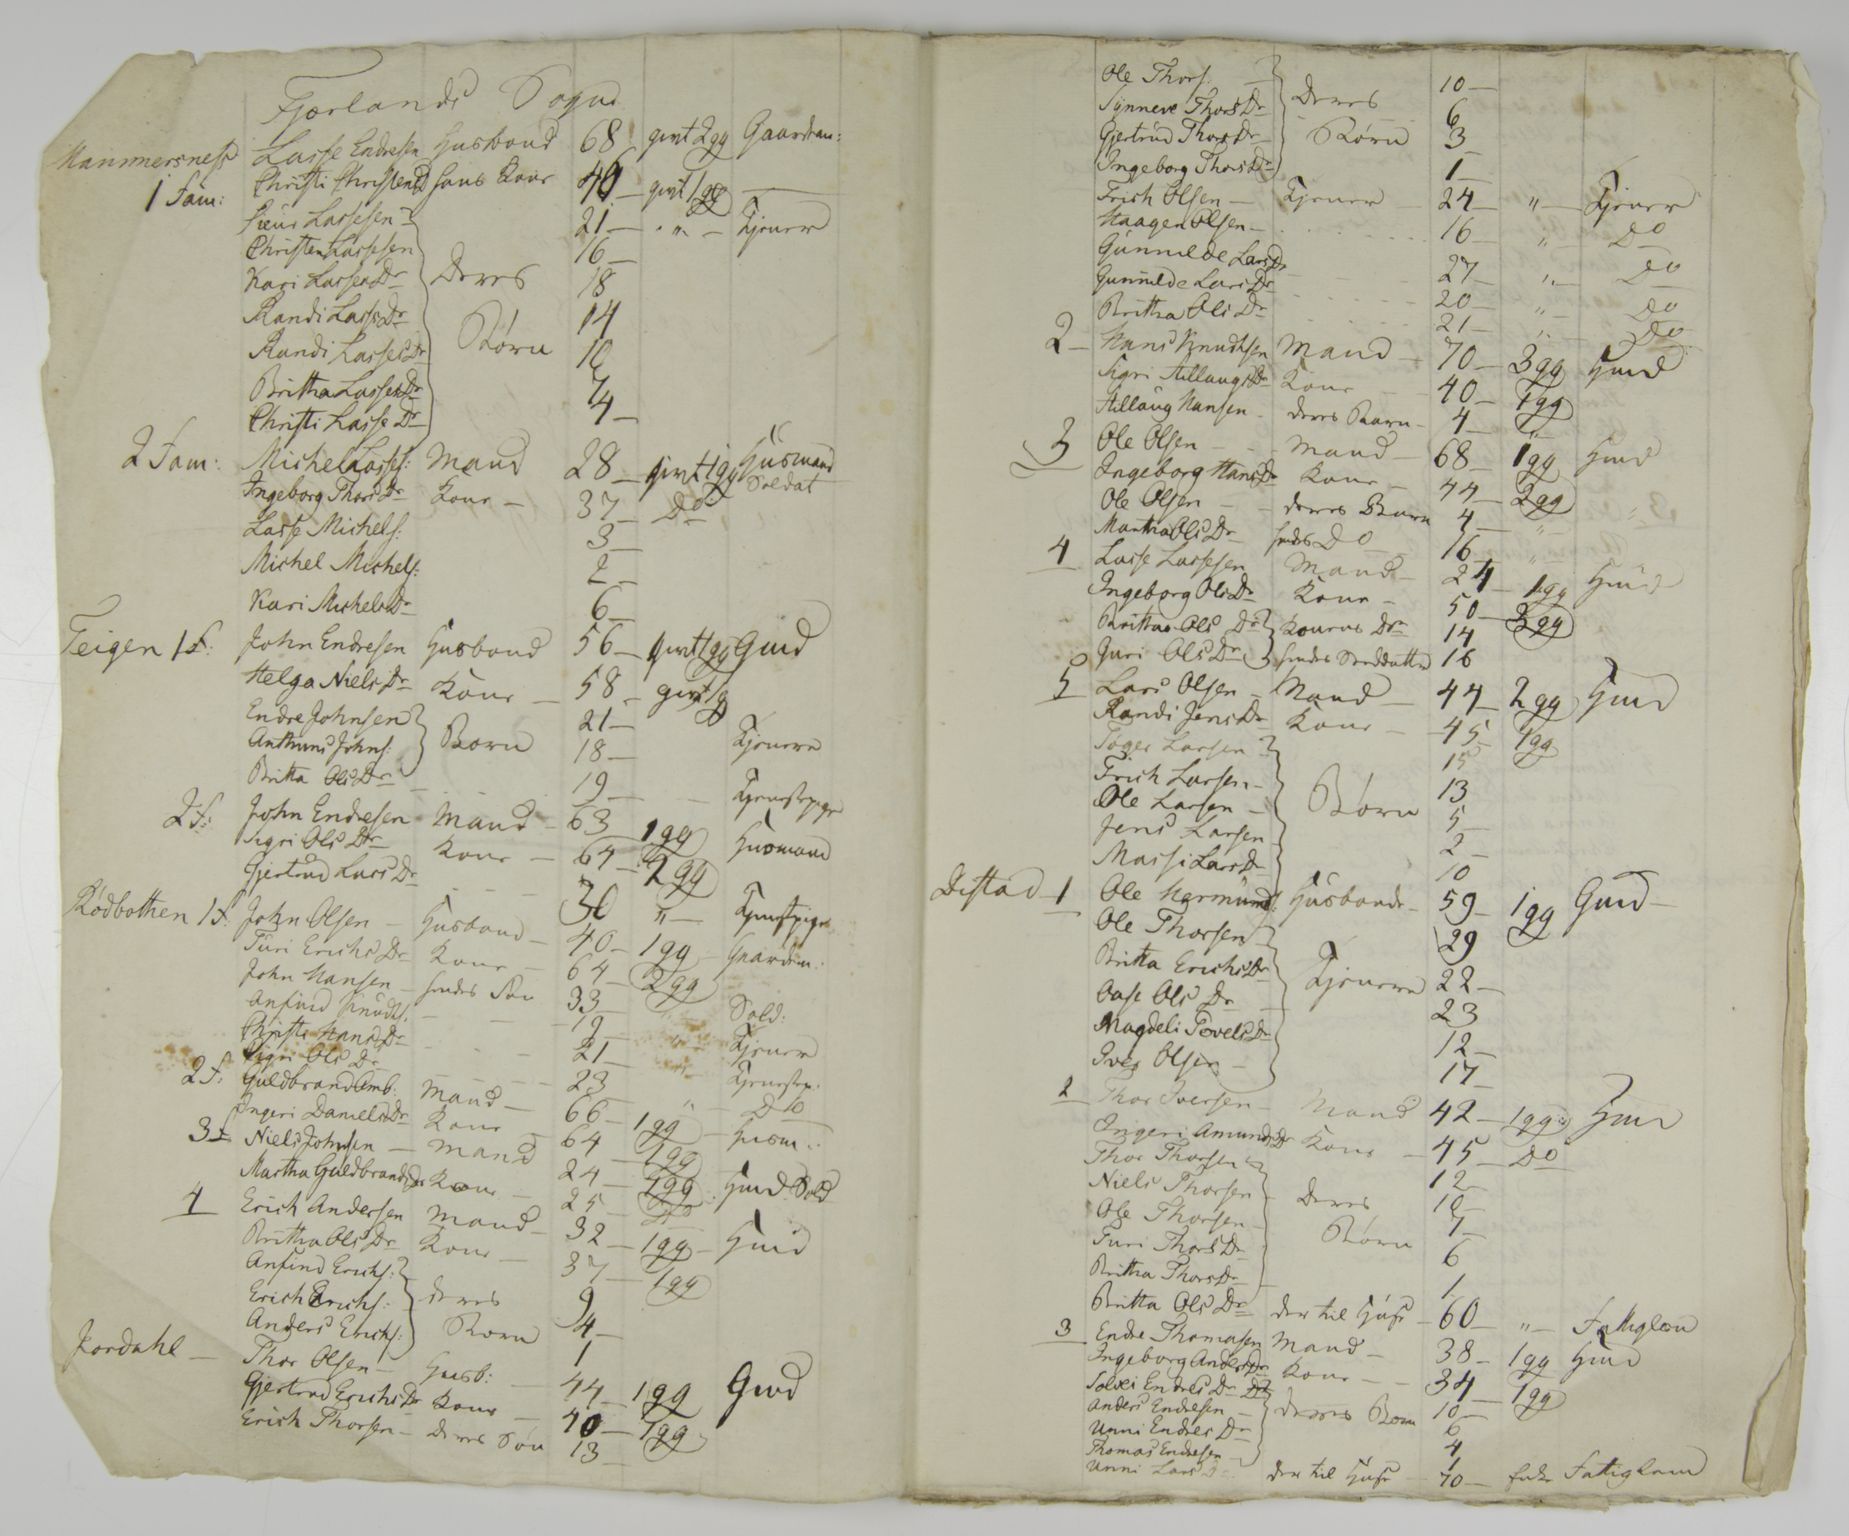 Fjærlands Sogn
Mannmersness Lasse Endresen Husbond 68 givt 2gg Gaardm:
1 Fam: Christi ChristensD hans Kone 46 givt 1gg
Lassesen 21 — " — Tjener
Christen Lassesen 16 —
Kari LassesDr Deres 18
Randi LassDr Børn 14
Randi LassesDr 10
Britha LassesDr 7
Christi LasseDr 4 —
2 Fam: Michel Lasses: Mand 28 — givt 1gg Husmand Soldat
Ingeborg ThorsDr Kone — 37 — Do
Lasse Michels: 3 —
Michel Michels: 2 —
Kari MichelsDr 6 —
Teigen 1 f: John Endresen Husbond 56 — givt 1gg Gmd
Helga NielsDr Kone — 58 — givt 1g
Endre Johnsen 21 —
Anthuns Johns: Børn 18 — Tjenere
Britta OlsDr 19 — Tjenestepige
2 f: John Endresen Mand — 63 — 1gg Husmand
Sigri OlsDtr Kone — 64 — 2gg
Gjertrud LarsDr 30 " — Tjenestpige
Rødbotten 1 f: John Olsen — Husbond — 40 — 1gg Gaardm:
Turi ErichsDr Kone — 64 — 2gg
John Hansen — hendes Søn 33 — Sold:
Anfind Knuds: Tjener
Christi HansDr 21
Sigri OlsDr 23 Tjenestp:
2 f: Guldbrand Amb: Mand — 66 — 1gg — Husm:
Ingeri DanielsDr Kone 64 — 1gg
3 f Niels Johnsen — Mand 24 — 1gg Hmd. Sold
Martha GuldbrandsDr Kone — 25 —
4 Erich Andersen Mand — 32 — 1gg — Hmd
Britha OlsDr Kone — 37 — 1gg
Anfind Erichs: 9
Erich Erichs: deres 4 —
Anders Erichs: Børn 1
Jordahl — Thor Olsen — Husb: — 44 — 1gg Gmd
Gjertrud ErichsDr Kone — 40 — 1gg
Erich Thorsen — Deres Søn 13 —
Ole Thors: 10 —
Synneve ThorsDr Deres 6
Gjertrud ThorsDr Børn 3
Ingeborg ThorsDr 1
Erich Olsen — Tjener — 24 — " — Tjener
Haagen Olsen — 16 — " — Do
Gunnilde LarsDr 27 — " — Do
Gunnilde LarsDr 20 — " — Do
Britha OlsDr 21 — " — Do
2 — Hans Knudsen Mand — 70 — 3gg Hmd
Sigri AillaugsDr Kone — 40 — 1gg
Aillaug Hansen — deres Barn — 4 —
3 Ole Olsen — Mand — 68 — 1gg Hmd
Ingeborg HansDr Kone — 44 — 2gg
Ole Olsen — deres Barn 4 — "
Martha OlsDr hendes Do — 16 —
4 Lasse Lassesen Mand — 24 — 1gg Hmd
Ingeborg OlsDr Kone — 50 — 3gg
Britha Ols Dr Konens Dr 14
Guri OlsDr hendes 16
5 Lars Olsen — Mand — 44 — 2gg Hmd
Randi JensDr Kone — 45 — 1gg
Tøger Larsen 15
Erich Larsen — 13
Ole Larsen — Børn 5 —
Jens Larsen 2 —
Massi LarsDr 10
Distad — 1 Ole Hermunds: Husbonde — 59 — 1gg Gmd —
Ole Thorsen 29
Britta ErichsDr Tjenere 22 —
Aase Ols Dr 23
Magdeli PovelsDr 12 —
Iver Olsen — 17 —
2 Thor Iversen — Mand 42 — 1gg Hmd
Ingeri AmundsDr Kone — 45 — Do
Thor Thorsen 12 —
Niels Thorsen — Deres 10 —
Ole Thorsen — Børn 7 —
Turi ThorsDr 6
Britha ThorsDr — 1
Britta Ols Dr der til Huse — 60 — " — Fattiglem
3 Endre Thomasen Mand — 38 — 1gg Hmd
Ingeborg AndersDr Kone — — 34 — 1gg
Solvei Endres Dr 10 —
Anders Endresen — deres Børn 6
Unni Endres Dr 4
Thomas Endresen — 1
Unni Lars D der til Huse — 70 — Enke Fattiglem